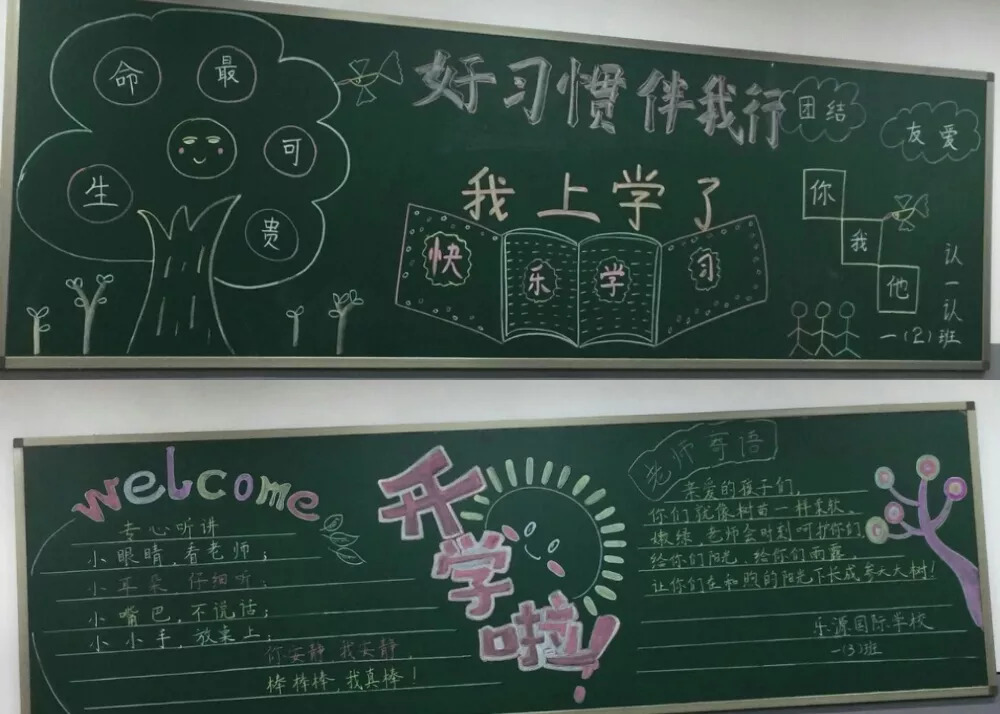 生命最可贵
好习惯伴我行
团结
友爱
我上学了
快乐学习
你
我
他
认一认
一(2)班
welcome
专心听讲
小眼睛,看老师;
小耳朵,仔细听;
小嘴巴,不说话;
小小手,放桌上;
你安静,我安静,
棒棒棒,我真棒!
开学啦!
老师寄语
亲爱的孩子们,
你们就像树苗一样柔软、
嫩绿,老师会时刻呵护你们,
给你们阳光,给你们雨露,
让你们在和煦的阳光下长成参天大树!
乐源国际学校
一(3)班